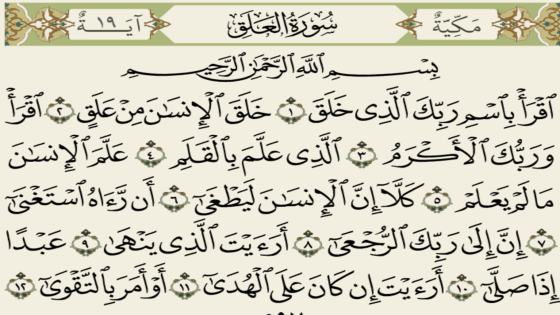 مَكِّيَّةٌ سُورَةُ الْعَلَقِ آيَةٌ ١٩
بِسْمِ اللَّهِ الرَّحْمَٰنِ الرَّحِيمِ
ٱقْرَأْ بِٱسْمِ رَبِّكَ ٱلَّذِى خَلَقَ ١ خَلَقَ ٱلْإِنسَٰنَ مِنْ عَلَقٍ ٢ ٱقْرَأْ
وَرَبُّكَ ٱلْأَكْرَمُ ٣ ٱلَّذِى عَلَّمَ بِٱلْقَلَمِ ٤ عَلَّمَ ٱلْإِنسَٰنَ
مَا لَمْ يَعْلَمْ ٥ كَلَّآ إِنَّ ٱلْإِنسَٰنَ لَيَطْغَىٰٓ ٦ أَن رَّءَاهُ ٱسْتَغْنَىٰٓ
٧ إِنَّ إِلَىٰ رَبِّكَ ٱلرُّجْعَىٰٓ ٨ أَرَءَيْتَ ٱلَّذِى يَنْهَىٰ ٩ عَبْدًا
إِذَا صَلَّىٰٓ ١٠ أَرَءَيْتَ إِن كَانَ عَلَى ٱلْهُدَىٰٓ ١١ أَوْ أَمَرَ بِٱلتَّقْوَىٰٓ ١٢